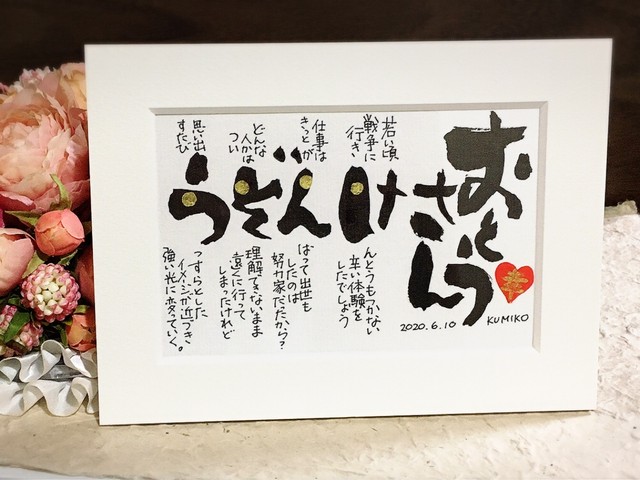 おとうさん
幸
若い頃
戦争に
行き
け
んとうもつかない
辛い体験を
したでしょう
仕事は
きっとが
ん
ばって出世も
したのは
努力家だったから?
どんな
人かは
つい
ぞ
理解できないまま
遠くに行って
しまったけれど
思い出
すたび
う
っすらとした
イメージが近づき
強い光に変っていく。
2020.6.10
KUMIKO